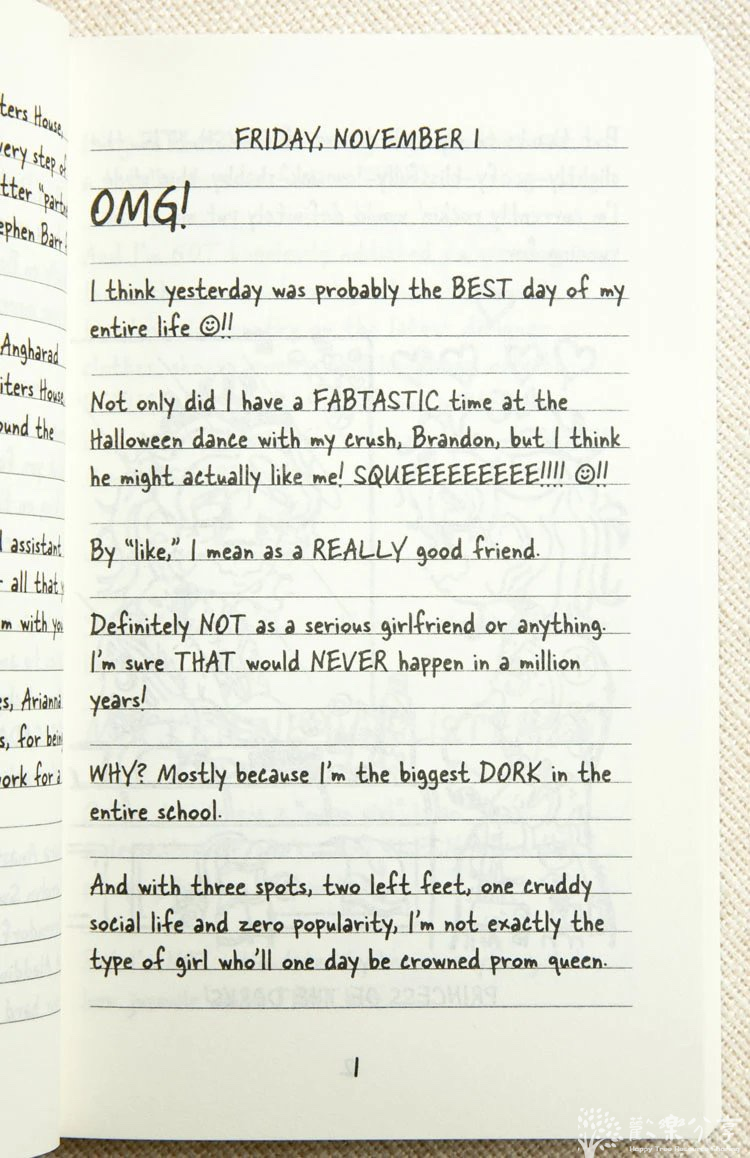 ters House,
very step of
tter "partn
ephen Barr
Angharad
iters House,
ound the
assistant
all that
m with you
s, Arianna
s, for bein
ork for a
FRIDAY, NOVEMBER 1
OMG!
I think yesterday was probably the BEST day of my
entire life ☺!!
Not only did I have a FABTASTIC time at the
Halloween dance with my crush, Brandon, but I think
he might actually like me! SQUEEEEEEEEE!!!! ☺!!
By “like,” I mean as a REALLY good friend.
Definitely NOT as a serious girlfriend or anything.
I’m sure THAT would NEVER happen in a million
years!
WHY? Mostly because I’m the biggest DORK in the
entire school.
And with three spots, two left feet, one cruddy
social life and zero popularity, I’m not exactly the
type of girl who’ll one day be crowned prom queen.
1